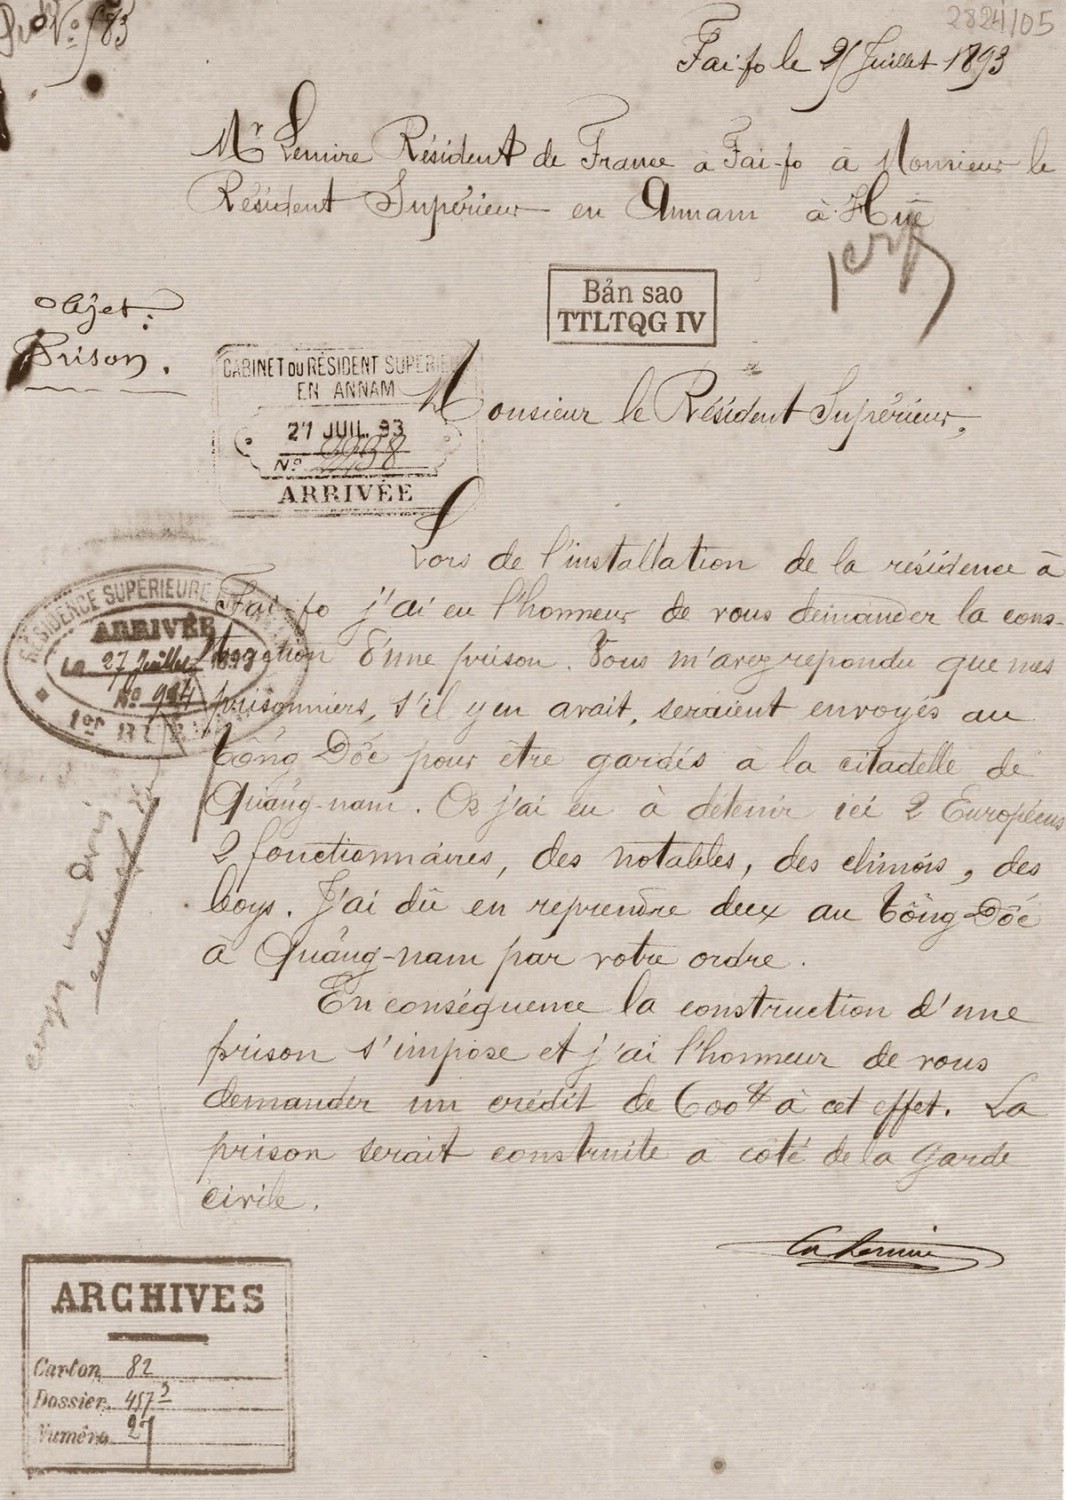 2824/05
N° 583
Fai-fo le 25 Juillet 1893
Mr Lemire Résident de France à Fai-fo à Monsieur le
Résident Supérieur en Annam à Hüé
Objet:
Prison.
Bản sao
TTLTQG IV
CABINET DU RÉSIDENT SUPÉRIEUR
EN ANNAM
27 JUIL. 93
N°
ARRIVÉE
Monsieur le Résident Supérieur,
Lors de l'installation de la résidence à
Fai-fo j'ai eu l'honneur de vous demander la cons-
truction d'une prison. Vous m'avez repondu que mes
prisonniers, s'il y en avait, seraient envoyés au
Tông Dôc pour être gardés a la citadelle de
Quảng-nam. Or j'ai eu à détenir ici 2 Européens
2 fonctionnaires, des notables, des chinois, des
boys. J'ai dû en reprendre deux au Tông-Dôc
a Quảng-nam par votre ordre.
En conséquence la construction d'une
prison s'impose et j'ai l'honneur de vous
demander un crédit de 600$ à cet effet. La
prison serait construite a coté de la Garde
civile.
RÉSIDENCE SUPÉRIEURE
ARRIVÉE
Le 27 Juillet 1893
N° 984
1er BUREAU
Ch Lemire
ARCHIVES
Carton 82
Dossier 457
Numéro 27